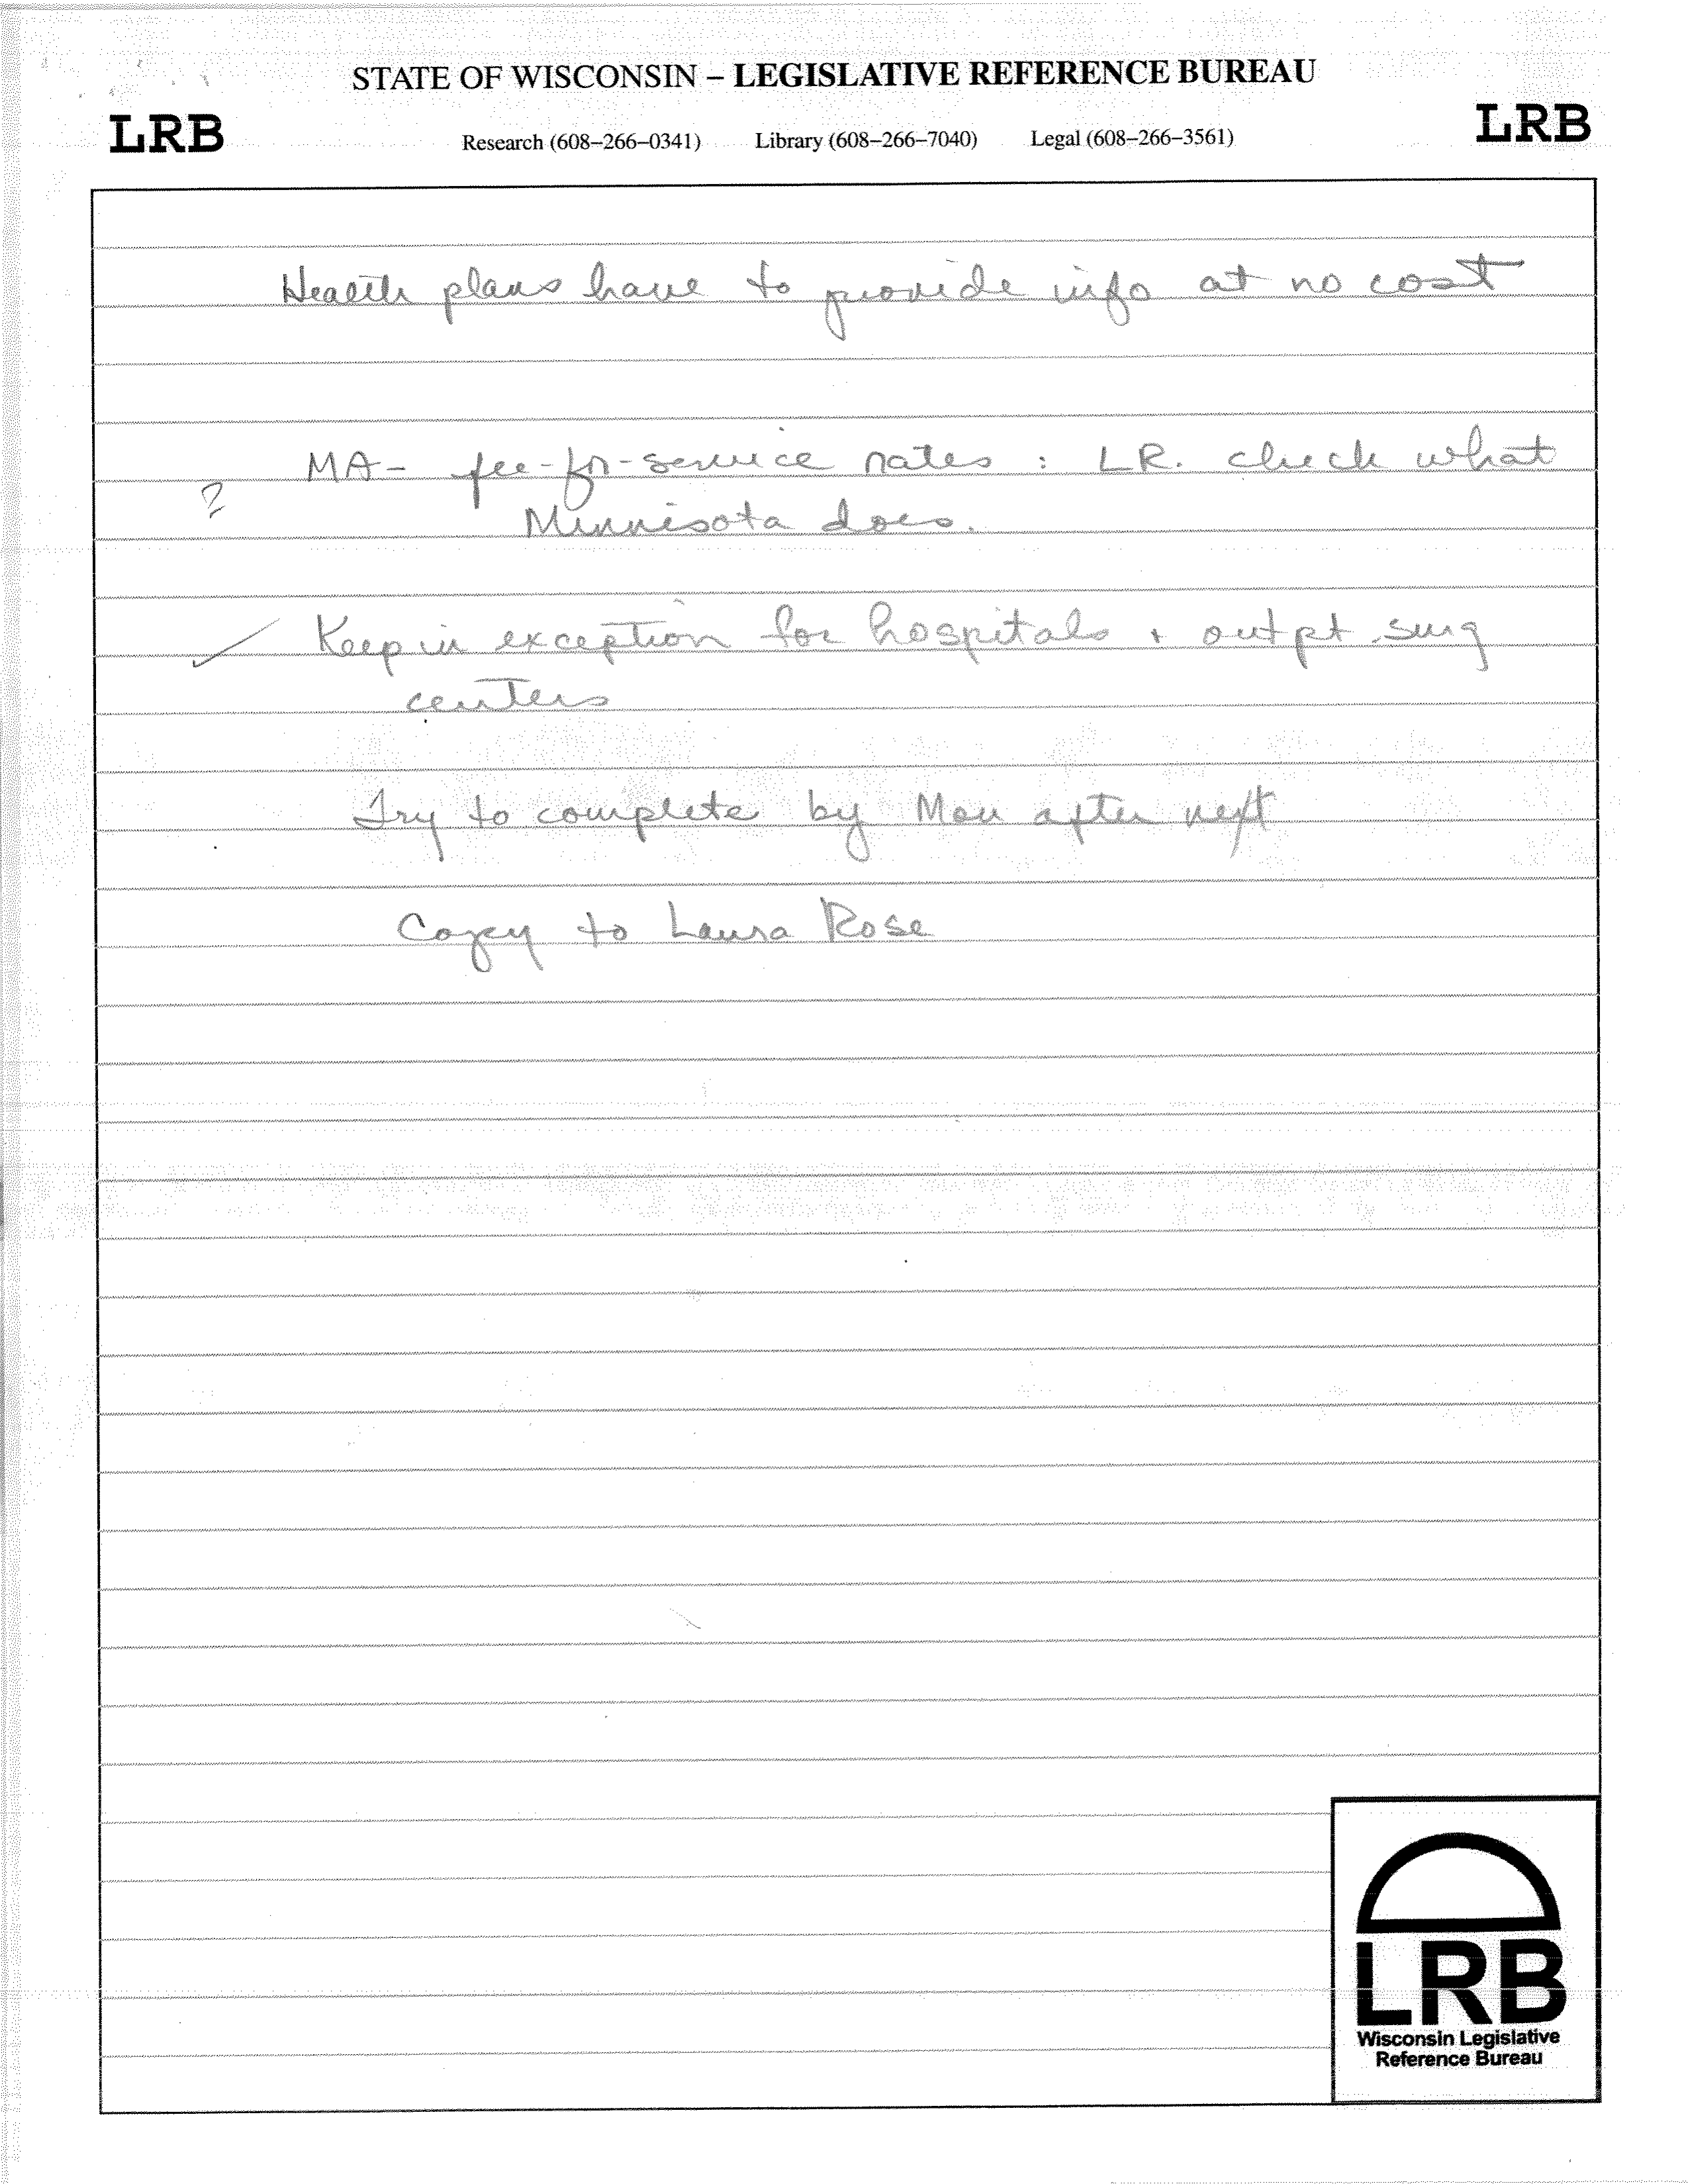 STATE OF WISCONSIN – LEGISLATIVE REFERENCE BUREAU
LRB
Research (608–266–0341) Library (608–266–7040) Legal (608–266–3561)
LRB
Health plans have to provide info at no cost
MA - fee-for-service rates : LR. check what
?
Minnesota does.
✓ Keep in exception for hospitals + outpt surg
centers
Try to complete by Mon after next
Copy to Laura Rose
LRB
Wisconsin Legislative
Reference Bureau